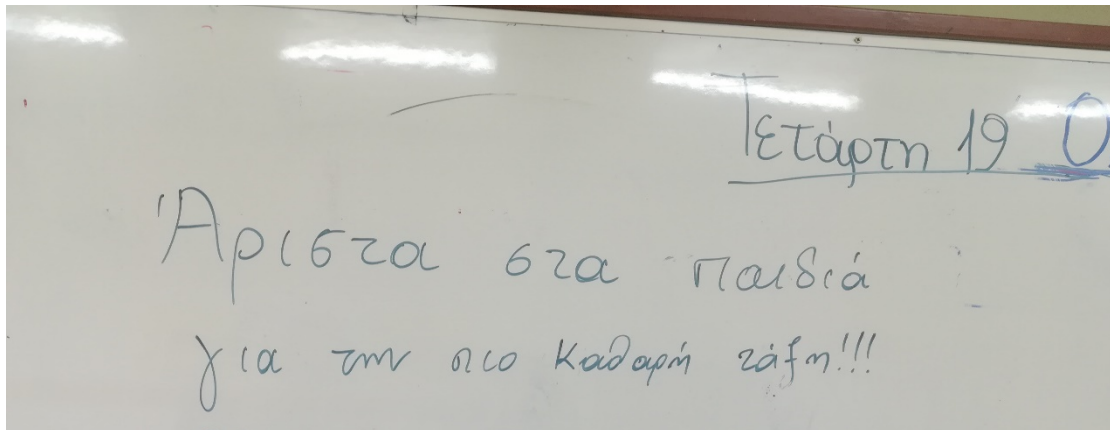 Τετάρτη 19
Άριστα στα παιδιά
για την πιο καθαρή τάξη!!!